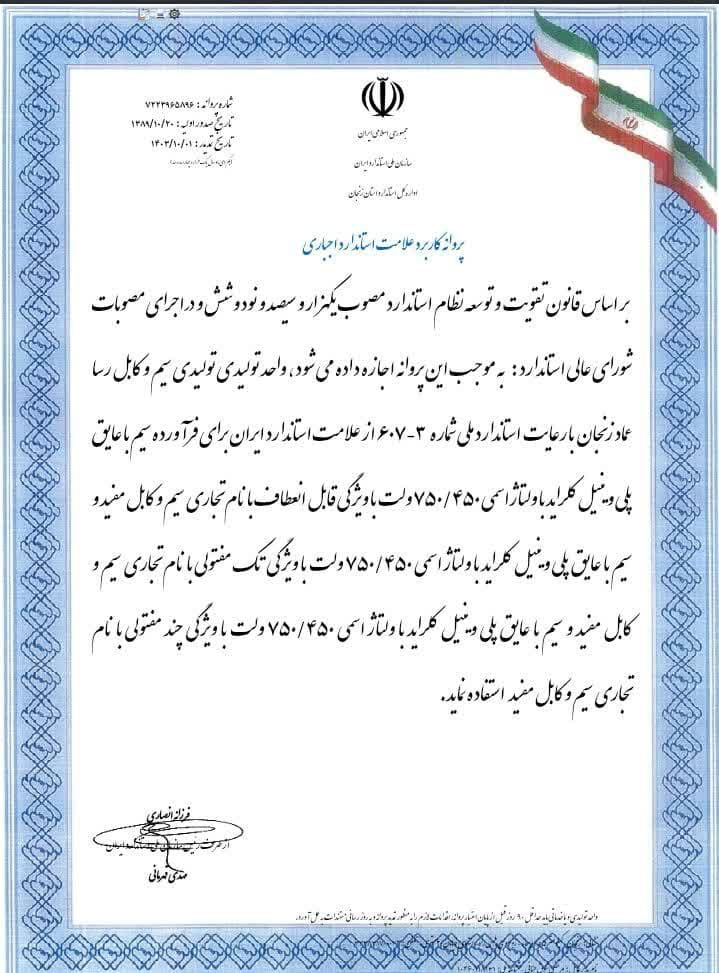 شماره پروانه : ۷۲۲۳۹۶۵۸۹۶
تاریخ صدور اولیه : ۱۳۸۹/۱۰/۲۰
تاریخ تمدید : ۱۴۰۳/۱۰/۰۱
جمهوری اسلامی ایران
سازمان ملی استاندارد ایران
اداره کل استاندارد استان زنجان
پروانه کاربرد علامت استاندارد اجباری
بر اساس قانون تقویت و توسعه نظام استاندارد مصوب یکهزار و سیصد و نود و شش و در اجرای مصوبات
شورای عالی استاندارد : به موجب این پروانه اجازه داده می شود، واحد تولیدی تولیدی سیم و کابل رسا
عماد زنجان با رعایت استاندارد ملی شماره ۳-۶۰۷ از علامت استاندارد ایران برای فرآورده سیم با عایق
پلی وینیل کلراید با ولتاژ اسمی ۷۵۰/۴۵۰ ولت با ویژگی قابل انعطاف با نام تجاری سیم و کابل مفید و
سیم با عایق پلی وینیل کلراید با ولتاژ اسمی ۷۵۰/۴۵۰ ولت با ویژگی تک مفتولی با نام تجاری سیم و
کابل مفید و سیم با عایق پلی وینیل کلراید با ولتاژ اسمی ۷۵۰/۴۵۰ ولت با ویژگی چند مفتولی با نام
تجاری سیم و کابل مفید استفاده نماید.
فرزانه انصاری
از طرف رئیس سازمان ملی استاندارد ایران
مهدی قهرمانی
واحد تولیدی و یا خدماتی باید حداقل ۹۰ روز قبل از پایان اعتبار پروانه، اقدامات لازم را به منظور تمدید پروانه و به روز رسانی مستندات به عمل آورد.